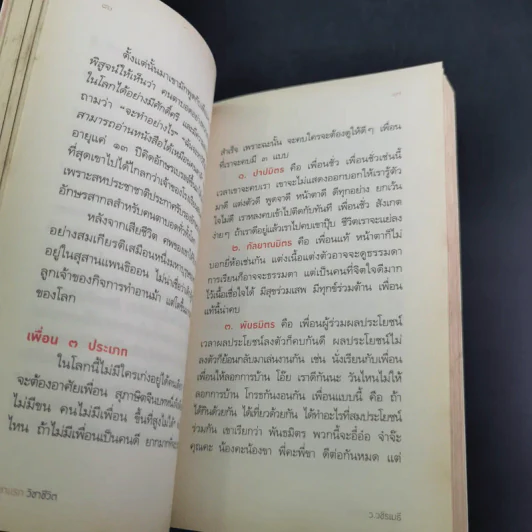 ตั้งแต่นั้นมาเขามักพูดกับ
พิสูจน์ให้เห็นว่า คนตาบอด
ในโลกได้อย่างมีศักดิ์ศรี และมี
ถามว่า "จะทำอย่างไร"
สามารถอ่านหนังสือได้เหมือนคน
อายุแค่ ๑๓ ปีคิดอักษรเบรลล์
ที่สุดเขาไปได้ไกลกว่าเจ้าของโรง
เพราะสหประชาชาติประกาศรับรอง
อักษรสากลสำหรับคนตาบอดทั่ว
หลังจากเสียชีวิต ศพของเขา
อย่างสมเกียรติเสมือนหนึ่ง
อยู่ในสุสานแพนธีออน ไม่น่าเชื่อว่า
ลูกเจ้าของกิจการทำอานม้า แต่ได้
ของโลก
เพื่อน ๓ ประเภท
ในโลกนี้ไม่มีใครเก่งอยู่ได้คนเดียว
จะต้องอาศัยเพื่อน สุภาษิตจีนบทหนึ่ง
ไม่มีขน คนไม่มีเพื่อน ขึ้นที่สูงไม่ได้
ไหน ถ้าไม่มีเพื่อนเป็นคนดี ยากมาก
วิชาชีวิต
สำเร็จ เพราะฉะนั้น จะคบใครจะต้องดูให้ดีๆ เพื่อน
ที่เราจะคบมี ๓ แบบ
๑. ปาปมิตร คือ เพื่อนชั่ว เพื่อนชั่วเช่นนี้
เวลาเขาจะคบเรา เขาจะไม่แสดงออกบอกให้เรารู้ตัว
มาดี แต่งตัวดี พูดจาดี หน้าตาดี ดีทุกอย่าง ยกเว้น
ใจไม่ดี เราหลงคบเข้าไปติดกับทันที เพื่อนชั่ว สังเกต
ง่ายๆ ถ้าเราดีอยู่แล้วเราไปคบเขาปุ๊บ ชีวิตเราจะแย่ลง
๒. กัลยาณมิตร คือ เพื่อนแท้ หน้าตาก็ไม่
บอกยี่ห้อเช่นกัน แต่งเนื้อแต่งตัวอาจจะดูธรรมดา
การเรียนก็อาจจะธรรมดา แต่เป็นคนที่จิตใจดีมาก
ไว้เนื้อเชื่อใจได้ มีสุขร่วมเสพ มีทุกข์ร่วมต้าน เพื่อน
แท้นี้น่าคบ
๓. พันธมิตร คือ เพื่อนผู้ร่วมผลประโยชน์
เวลาผลประโยชน์ลงตัวก็คบกันดี ผลประโยชน์ไม่
ลงตัวก็ย้อนกลับมาเล่นงานกัน เช่น นั่งเรียนกับเพื่อน
เพื่อนให้ลอกการบ้าน โอ๊ย เราดีกันนะ วันไหนไม่ให้
ลอกการบ้าน โกรธกันงอนกัน เพื่อนแบบนี้ คือ ถ้า
ได้กินด้วยกัน ได้เที่ยวด้วยกัน ได้ทำอะไรที่สมประโยชน์
ร่วมกัน เขาเรียกว่า พันธมิตร พวกนี้จะอี๋อ๋อ จ๋าจ๊ะ
คุณคะ น้องคะน้องขา พี่คะพี่ขา ดีต่อกันหมด แต่
ว.วชิรเมธี